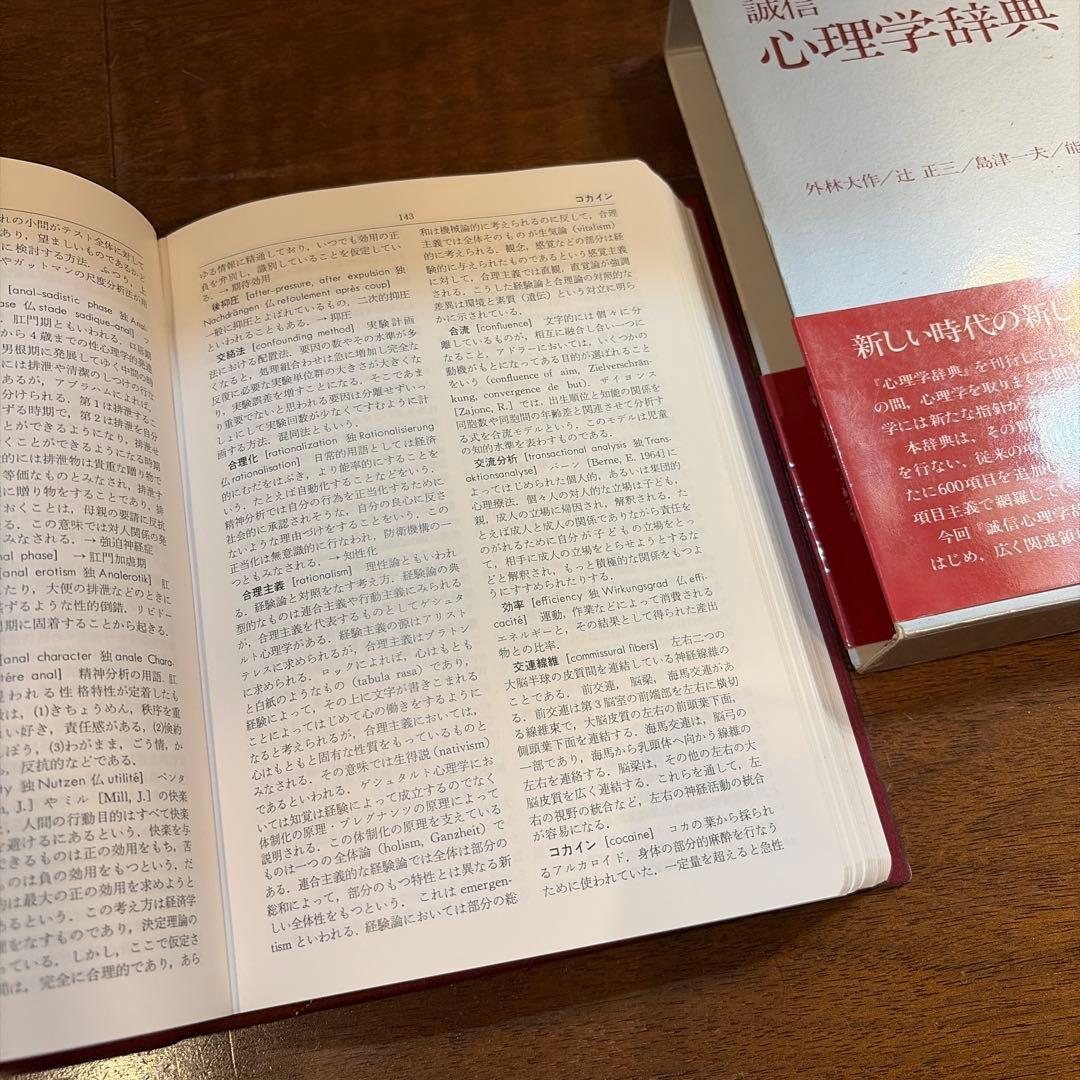 れの小問がテスト全体に対して
あり，望ましいものであるかと
に検討する方法．ふつう，上
やガットマンの尺度分析法が用
[anal-sadistic phase 独 Anal-
ase 仏 stade sadique-anal]
．肛門期ともいわれる．口唇期
から4歳までの性心理学的発達
男根期に発展してゆく中間の時
には排泄や清潔のしつけの行な
あるが，アブラハムによれば，
分けられる．第1は排泄するこ
ずる時期で，第2は排泄を自分
とができるようになり，排泄せ
くことができるようになる時期
的には排泄物は貴重な贈り物で
等価なものとみなされ，排泄す
に贈り物をすることであり，排
おくことは，母親の要請に反抗
る．この意味では対人関係の発
みなされる．→ 強迫神経症
nal phase] → 肛門加虐期
[anal erotism 独 Analerotik] 肛
たり，大便の排泄などのときに
ずるような性的倒錯．リビドー
期に固着することから起きる．
[anal character 独 anale Charo-
tére anal] 精神分析の用語．肛
われる性格特性が定着したも
は，(1)きちょうめん，秩序を重
い好き，責任感がある，(2)倹約
ぼう，(3)わがまま，ごう情，か
，反抗的などである．
ty 独 Nutzen 仏 utilité] ベンタ
, J.] やミル [Mill, J.] の快楽
，人間の行動目的はすべて快楽
を避けるにあるという．快楽を与
できるものは正の効用をもち，苦
は負の効用をもつという．だ
は最大の正の効用を求めようと
あるという．この考え方は経済学
をなすものであり，決定理論の
っている．しかし，ここで仮定さ
間は，完全に合理的であり，あら
143
コカイン
ゆる情報に精通しており，いつでも効用の正
負を弁別し，識別していることを仮定してい
る．→ 期待効用
後抑圧 [after-pressure, after expulsion 独
Nachdrängen 仏 refoulement après coup]
一般に抑圧とよばれているもの．二次的抑圧
といわれることもある．→ 抑圧
交絡法 [confounding method] 実験計画
法における配置法．要因の数やその水準が多
くなると，処理組合わせは急に増加し完全な
反復に必要な実験単位群の大きさが大きくな
り，実験誤差を増すことになる．そこであま
り重要でないと思われる要因は分離せずいっ
しょにして実験回数が少なくてすむように計
画する方法．混同法ともいう．
合理化 [rationalization 独 Rationalisierung
仏 rationalisation] 日常的用語としては経済
的にむだをはぶき，より能率的にすることを
いう．たとえば自動化することなどをいう．
精神分析では自分の行為を正当化するために
社会的に承認されそうな，自分の良心に反さ
ないような理由づけをすることをいう．この
正当化は無意識的に行なわれ，防衛機構の一
つともみなされる．→ 知性化
合理主義 [rationalism] 理性論ともいわれ
る．経験論と対照をなす考え方．経験論の典
型的なものは連合主義や行動主義にみられる
が，合理主義を代表するものとしてゲシュタ
ルト心理学がある．経験主義の源はアリスト
テレスに求められるが，合理主義はプラトン
に求められる．ロックによれば，心はもとも
と白紙のようなもの (tabula rasa) であり，
経験によって，その上に文字が書きこまれる
ことによってはじめて心の働きをするように
なると考えられるが，合理主義においては，
心はもともと固有な性質をもっているものと
みなされる．その意味では生得説 (nativism)
であるといわれる．ゲシュタルト心理学にお
いては知覚は経験によって成立するのでなく
体制化の原理・プレグナンツの原理によって
説明される．この体制化の原理を支えている
ものは一つの全体論 (holism, Ganzheit) で
ある．連合主義的な経験論では全体は部分の
総和によって，部分のもつ特性とは異なる新
しい全体性をもつという．これは emergen-
tism といわれる．経験論においては部分の総
和は機械論的に考えられるのに反して，合理
主義では全体そのものが生気論 (vitalism)
的に考えられる．観念，感覚などの部分は経
験的に与えられたものであるという感覚主義
に対して，合理主義では直観，直覚論が強調
される．こうした経験論と合理論の対照的な
差異は環境と素質（遺伝）という対立に明ら
かに示されている．
合流 [confluence] 文字的には個々に分
離しているものが，相互に融合し合い一つに
なること．アドラーにおいては，いくつかの
動機がもとになってある目的が選ばれること
をいう (confluence of aim, Zielverschrän-
kung, convergence de but). ザイヨンス
[Zajonc, R.] では，出生順位と知能の関係を
同胞数や同胞間の年齢差と関連させて分析す
る式を合流モデルという．このモデルは児童
の知的水準を表わすものである．
交流分析 [transactional analysis 独 Trans-
aktionsanalyse] バーン [Berne, E. 1964] に
よってはじめられた個人的，あるいは集団的
心理療法．個々人の対人的な立場は子ども，
親，成人の立場に帰因され，解釈される．た
とえば成人と成人の関係でありながら責任を
のがれるために自分が子どもの立場をとっ
て，相手に成人の立場をとらせようとするな
どと解釈され，もっと積極的な関係をもつよ
うにすすめられたりする．
効率 [efficiency 独 Wirkungsgrad 仏 effi-
cacité] 運動，作業などによって消費される
エネルギーと，その結果として得られた産出
物との比率．
交連線維 [commissural fibers] 左右二つの
大脳半球の皮質間を連結している神経線維の
ことである．前交連，脳梁，海馬交連があ
る．前交連は第3脳室の前端部を左右に横切
る線維束で，大脳皮質の左右の前頭葉下面，
側頭葉下面を連結する．海馬交連は，脳弓の
一部であり，海馬から乳頭体へ向かう線維の
左右を連絡する．脳梁は，その他の左右の大
脳皮質を広く連結する．これらを通して，左
右の視野の統合など，左右の神経活動の統合
が容易になる．
コカイン [cocaine] コカの葉から採られ
るアルカロイド，身体の部分的麻酔を行なう
ために使われていた．一定量を超えると急性
誠信
心理学辞典
外林大作／辻 正三／島津一夫／能
新しい時代の新し
『心理学辞典』を刊行して以
の間，心理学を取りまく学問
学には新たな指針が
本辞典は，その期
を行ない，従来の項
たに600項目を追加し
項目主義で網羅してい
今回『誠信心理学辞
はじめ，広く関連領域